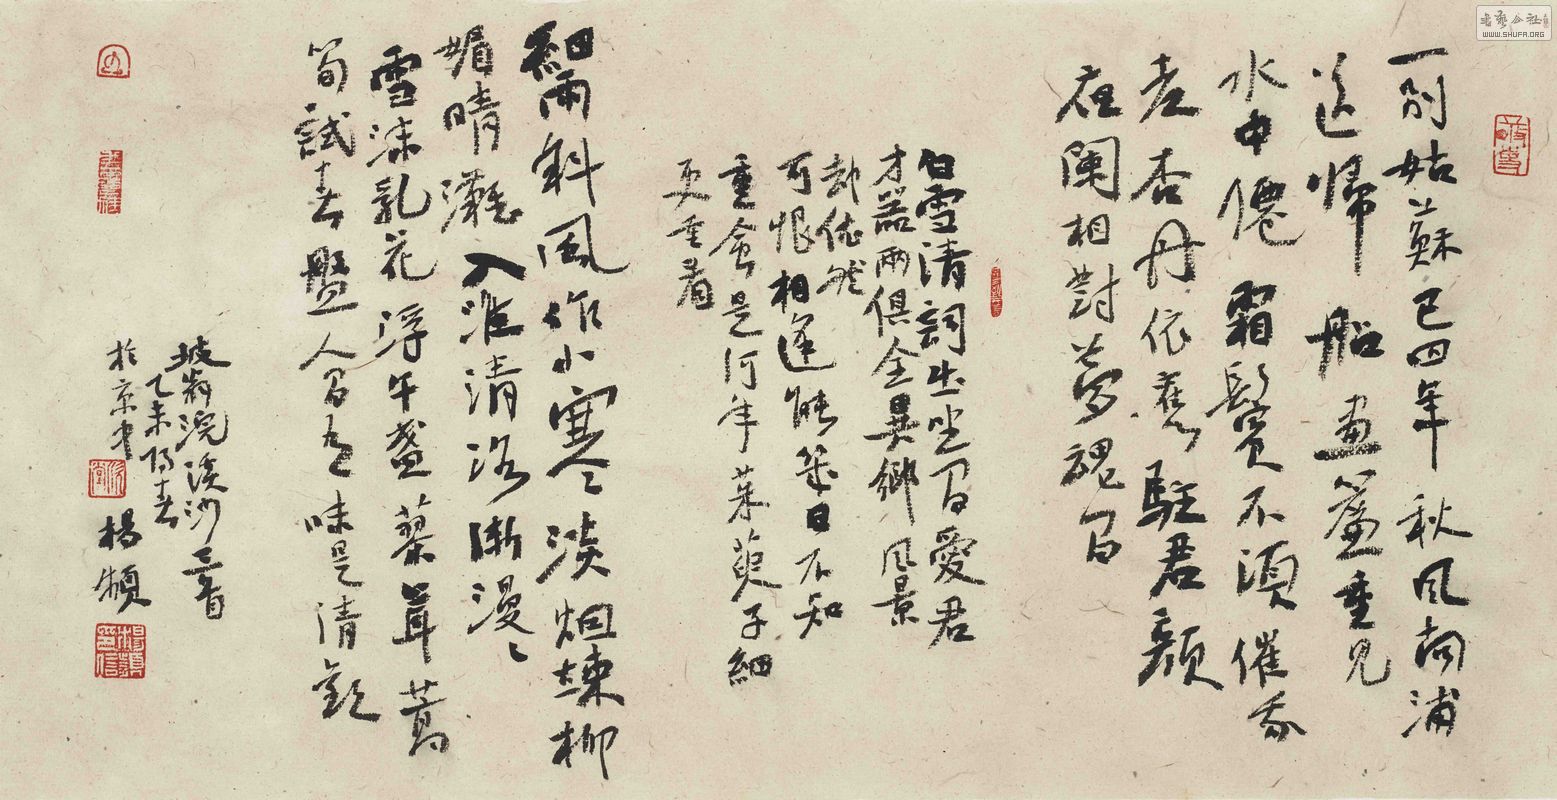 一别姑蘇已四年秋風南浦
送歸船畫簾重見
水中僊霜鬢不須催我
老杏丹依舊駐君顏
夜闌相對夢魂間
白雪清詞出坐間愛君
才器兩俱全異鄉風景
却依然
可恨相逢能幾日不知
重會是何年茱萸子細
更重看
細雨斜風作小寒淡烟疎柳
媚晴灘入淮清洛漸漫〻
雪沫乳花浮午盞蓼茸蒿
筍試春盤人間有味是清歡
坡翁浣溪沙三首
乙未陽春
於京中
楊頻
楊頻印信
書藝公社
WWW.SHUFA.ORG